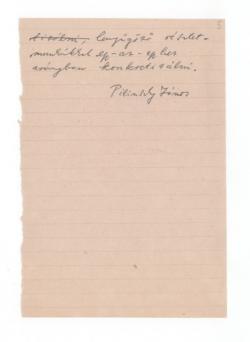 5
lenyűgöző részlet-
munkákkal egy-az-egyhez
arányban konkretizálni.
Pilinszky János